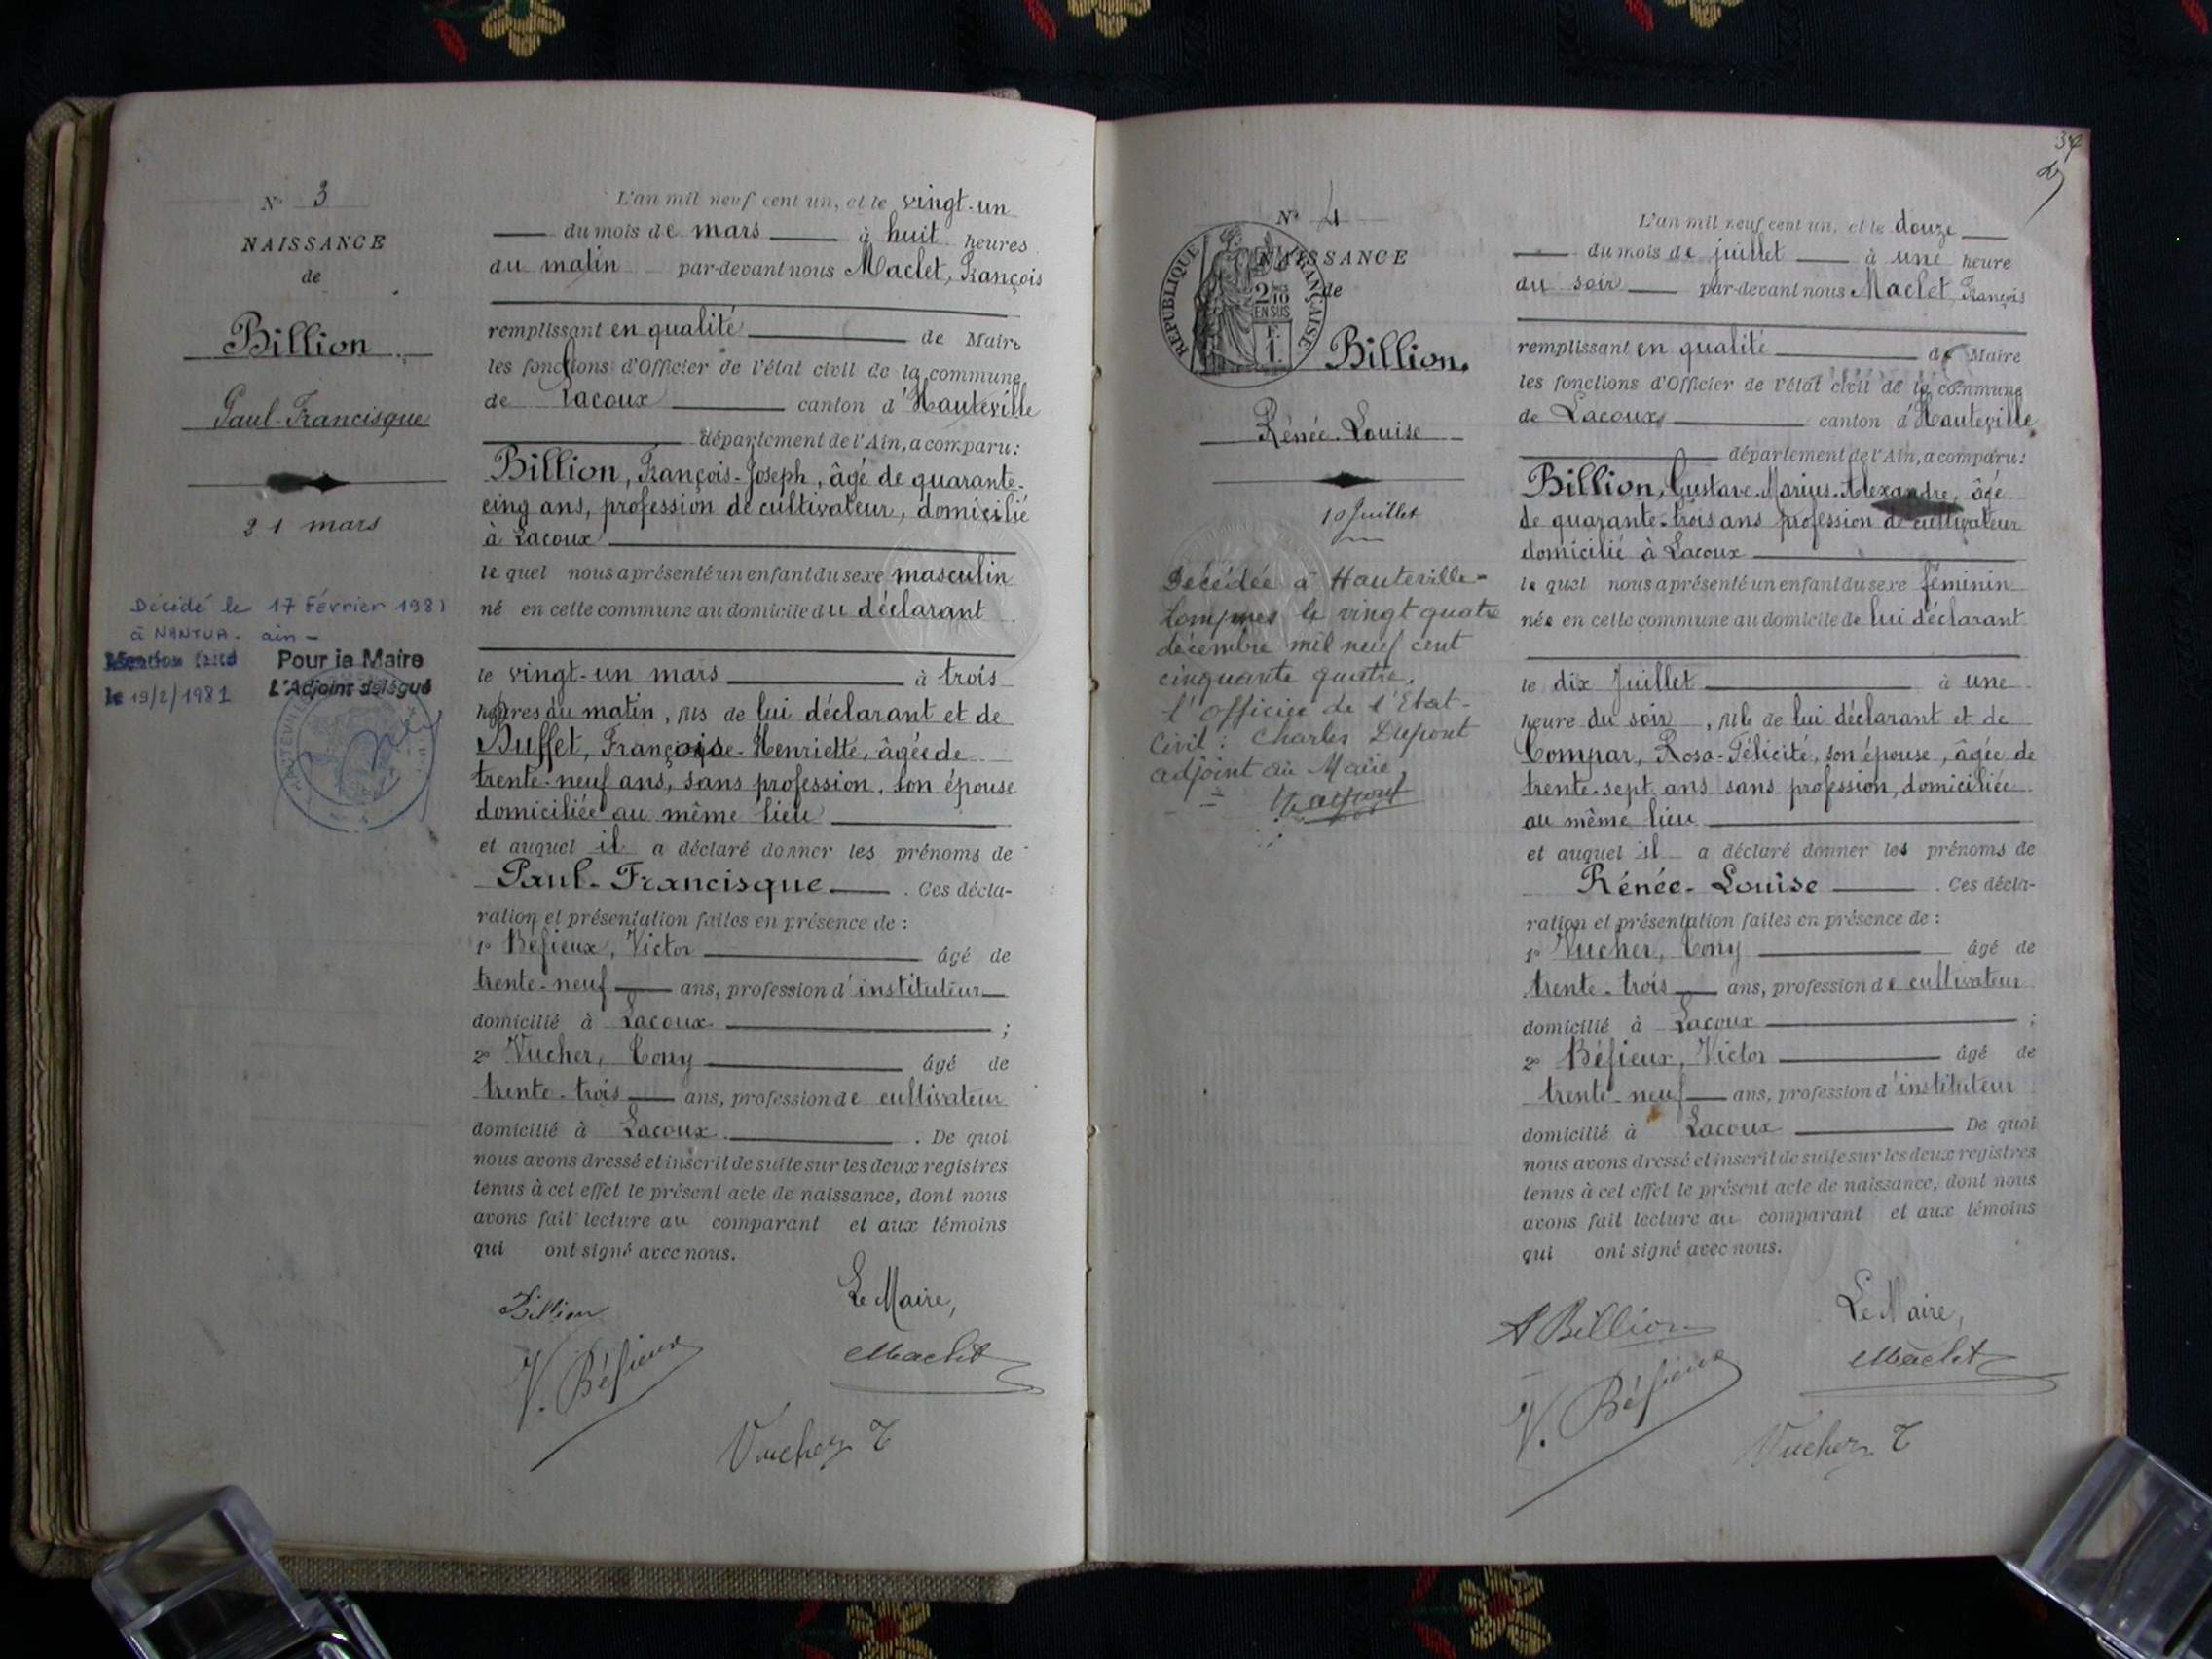 N° 3
NAISSANCE
de
Billion
Paul-Francisque
21 mars
Décédé le 17 Février 1981
à NANTUA - ain -
Mention faite
le 19/2/1981
Pour le Maire
L'Adjoint délégué
L'an mil neuf cent un, et le vingt-un
du mois de mars à huit heures
du matin par-devant nous Maclet, François
remplissant en qualité de Maire
les fonctions d'Officier de l'état civil de la commune
de Lacoux canton d'Hauteville
département de l'Ain, a comparu:
Billion, François-Joseph, âgé de quarante-
cinq ans, profession de cultivateur, domicilié
à Lacoux
le quel nous a présenté un enfant du sexe masculin
né en cette commune au domicile du déclarant
le vingt-un mars à trois
heures du matin, fils de lui déclarant et de
Buffet, Françoise-Henriette, âgée de
trente-neuf ans, sans profession, son épouse
domiciliée au même lieu
et auquel il a déclaré donner les prénoms de
Paul-Francisque. Ces décla-
ration et présentation faites en présence de :
1° Béfieux, Victor âgé de
trente-neuf ans, profession d'instituteur
domicilié à Lacoux ;
2° Vucher, Tony âgé de
trente-trois ans, profession de cultivateur
domicilié à Lacoux. De quoi
nous avons dressé et inscrit de suite sur les deux registres
tenus à cet effet le présent acte de naissance, dont nous
avons fait lecture au comparant et aux témoins
qui ont signé avec nous.
Billion
Le Maire,
V. Béfieux
Maclet
Vucher T
N° 4
NAISSANCE
de
REPUBLIQUE FRANÇAISE
2/10
EN SUS
F.
1.
Billion.
Rénée-Louise
10 Juillet
Décédée à Hauteville-
Lompnes le vingt quatre
décembre mil neuf cent
cinquante quatre.
l'Officier de l'Etat-
Civil : Charles Dupont
adjoint au Maire,
L'an mil neuf cent un, et le douze
du mois de juillet à une heure
du soir par-devant nous Maclet, François
remplissant en qualité de Maire
les fonctions d'Officier de l'état civil de la commune
de Lacoux canton d'Hauteville
département de l'Ain, a comparu:
Billion, Gustave-Marius-Alexandre, âgé
de quarante-trois ans profession de cultivateur
domicilié à Lacoux
le quel nous a présenté un enfant du sexe féminin
née en cette commune au domicile de lui déclarant
le dix Juillet à une
heure du soir, fille de lui déclarant et de
Compar, Rosa-Félicité, son épouse, âgée de
trente-sept ans sans profession, domiciliée
au même lieu
et auquel il a déclaré donner les prénoms de
Rénée-Louise. Ces décla-
ration et présentation faites en présence de :
1° Vucher, Tony âgé de
trente-trois ans, profession de cultivateur
domicilié à Lacoux ;
2° Béfieux, Victor âgé de
trente-neuf ans, profession d'instituteur
domicilié à Lacoux De quoi
nous avons dressé et inscrit de suite sur les deux registres
tenus à cet effet le présent acte de naissance, dont nous
avons fait lecture au comparant et aux témoins
qui ont signé avec nous.
A Billion
Le Maire,
V. Béfieux
Maclet
Vucher T